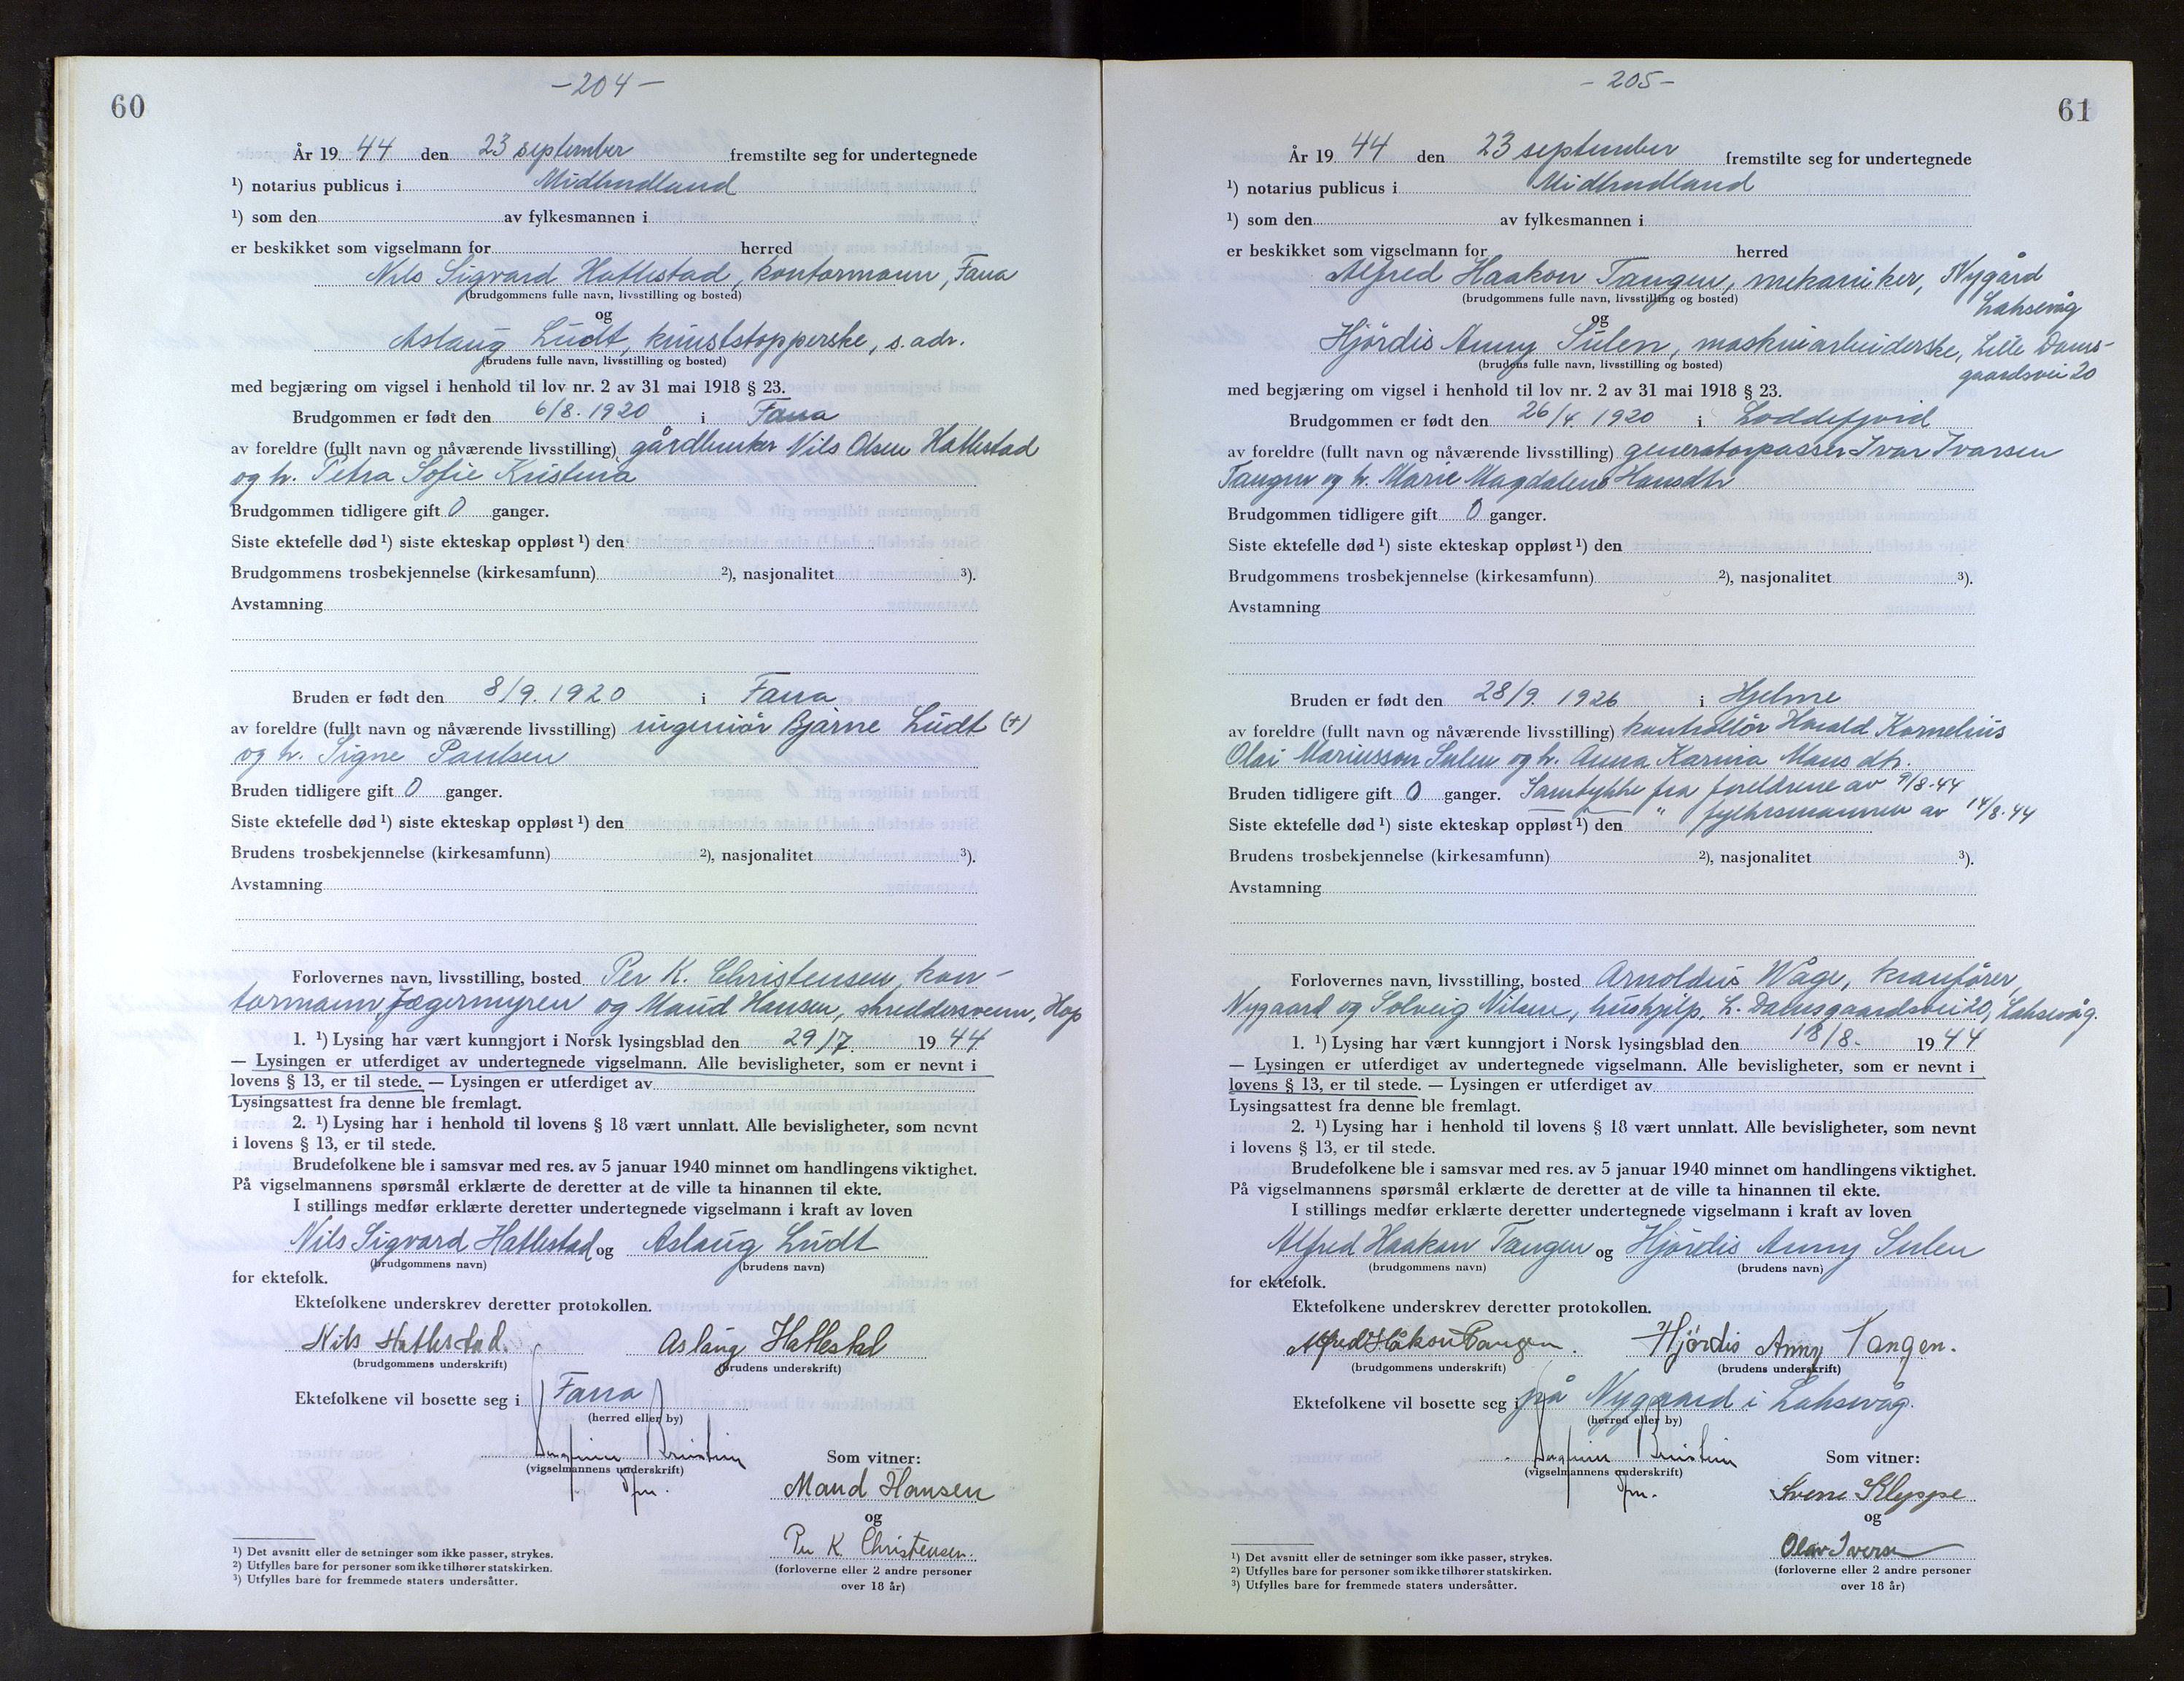 60
-204-
År 19 44 den 23 september fremstilte seg for undertegnede
¹) notarius publicus i Midhordland
¹) som den av fylkesmannen i
er beskikket som vigselmann for herred
Nils Sigvard Hatlestad, kontormann, Fana
(brudgommens fulle navn, livsstilling og bosted)
og
Aslaug Lüdt, kunststopperske, s. adr.
(brudens fulle navn, livsstilling og bosted)
med begjæring om vigsel i henhold til lov nr. 2 av 31 mai 1918 § 23.
Brudgommen er født den 6/8. 1920 i Fana
av foreldre (fullt navn og nåværende livsstilling) gårdbruker Nils Olsen Hatlestad
og h. Petra Sofie Kristina
Brudgommen tidligere gift 0 ganger.
Siste ektefelle død ¹) siste ekteskap oppløst ¹) den
Brudgommens trosbekjennelse (kirkesamfunn) ²), nasjonalitet ³).
Avstamning
Bruden er født den 8/9. 1920 i Fana
av foreldre (fullt navn og nåværende livsstilling) ingeniør Bjarne Lüdt (+)
og h. Signe Paulsen
Bruden tidligere gift 0 ganger.
Siste ektefelle død ¹) siste ekteskap oppløst ¹) den
Brudens trosbekjennelse (kirkesamfunn) ²), nasjonalitet ³).
Avstamning
Forlovernes navn, livsstilling, bosted Per K. Christensen, kon-
tormann, Jægermyren og Maud Hansen, skreddersvenn, Hop
1. ¹) Lysing har vært kunngjort i Norsk lysingsblad den 29/7. 19 44
— Lysingen er utferdiget av undertegnede vigselmann. Alle bevisligheter, som er nevnt i
lovens § 13, er til stede. — Lysingen er utferdiget av
Lysingsattest fra denne ble fremlagt.
2. ¹) Lysing har i henhold til lovens § 18 vært unnlatt. Alle bevisligheter, som nevnt
i lovens § 13, er til stede.
Brudefolkene ble i samsvar med res. av 5 januar 1940 minnet om handlingens viktighet.
På vigselmannens spørsmål erklærte de deretter at de ville ta hinannen til ekte.
I stillings medfør erklærte deretter undertegnede vigselmann i kraft av loven
Nils Sigvard Hatlestad og Aslaug Lüdt
(brudgommens navn) (brudens navn)
for ektefolk.
Ektefolkene underskrev deretter protokollen.
Nils Hatlestad. Aslaug Hatlestad
(brudgommens underskrift) (brudens underskrift)
Ektefolkene vil bosette seg i Fana
(herred eller by)
(vigselmannens underskrift)
fm.
Som vitner:
Maud Hansen
og
Per K. Christensen.
(forloverne eller 2 andre personer
over 18 år)
¹) Det avsnitt eller de setninger som ikke passer, strykes.
²) Utfylles bare for personer som ikke tilhører statskirken.
³) Utfylles bare for fremmede staters undersåtter.
-205-
61
År 19 44 den 23 september fremstilte seg for undertegnede
¹) notarius publicus i Midhordland
¹) som den av fylkesmannen i
er beskikket som vigselmann for herred
Alfred Haakon Tangen, mekaniker, Nygård
Laksevåg
(brudgommens fulle navn, livsstilling og bosted)
og
Hjördis Anny Sulen, maskinarbeiderske, Lille Dams-
gaardsvei 20
(brudens fulle navn, livsstilling og bosted)
med begjæring om vigsel i henhold til lov nr. 2 av 31 mai 1918 § 23.
Brudgommen er født den 26/4. 1920 i Loddefjord
av foreldre (fullt navn og nåværende livsstilling) generatorpasser Ivar Ivarsen
Tangen og h. Marie Magdalene Hansdtr
Brudgommen tidligere gift 0 ganger.
Siste ektefelle død ¹) siste ekteskap oppløst ¹) den
Brudgommens trosbekjennelse (kirkesamfunn) ²), nasjonalitet ³).
Avstamning
Bruden er født den 28/9. 1926 i Hjelme
av foreldre (fullt navn og nåværende livsstilling) kontrollör Harald Kornelius
Olai Mariusson Sulen og h. Anna Karina Mansdtr.
Bruden tidligere gift 0 ganger. Samtykke fra foreldrene av 9/8.44
Siste ektefelle død ¹) siste ekteskap oppløst ¹) den " fylkesmannen av 14/8.44
Brudens trosbekjennelse (kirkesamfunn) ²), nasjonalitet ³).
Avstamning
Forlovernes navn, livsstilling, bosted Arnoldus Våge, kranfører,
Nygaard og Solveig Nilsen, hushjelp, L. Damsgaardsvei 20, Laksevåg.
1. ¹) Lysing har vært kunngjort i Norsk lysingsblad den 18/8. 19 44
— Lysingen er utferdiget av undertegnede vigselmann. Alle bevisligheter, som er nevnt i
lovens § 13, er til stede. — Lysingen er utferdiget av
Lysingsattest fra denne ble fremlagt.
2. ¹) Lysing har i henhold til lovens § 18 vært unnlatt. Alle bevisligheter, som nevnt
i lovens § 13, er til stede.
Brudefolkene ble i samsvar med res. av 5 januar 1940 minnet om handlingens viktighet.
På vigselmannens spørsmål erklærte de deretter at de ville ta hinannen til ekte.
I stillings medfør erklærte deretter undertegnede vigselmann i kraft av loven
Alfred Haakon Tangen og Hjördis Anny Sulen
(brudgommens navn) (brudens navn)
for ektefolk.
Ektefolkene underskrev deretter protokollen.
Alfred Håkon Tangen. Hjördis Anny Tangen.
(brudgommens underskrift) (brudens underskrift)
Ektefolkene vil bosette seg i på Nygaard i Laksevåg.
(herred eller by)
(vigselmannens underskrift)
fm.
Som vitner:
Sverre Kleppe
og
Olav Iversen
(forloverne eller 2 andre personer
over 18 år)
¹) Det avsnitt eller de setninger som ikke passer, strykes.
²) Utfylles bare for personer som ikke tilhører statskirken.
³) Utfylles bare for fremmede staters undersåtter.